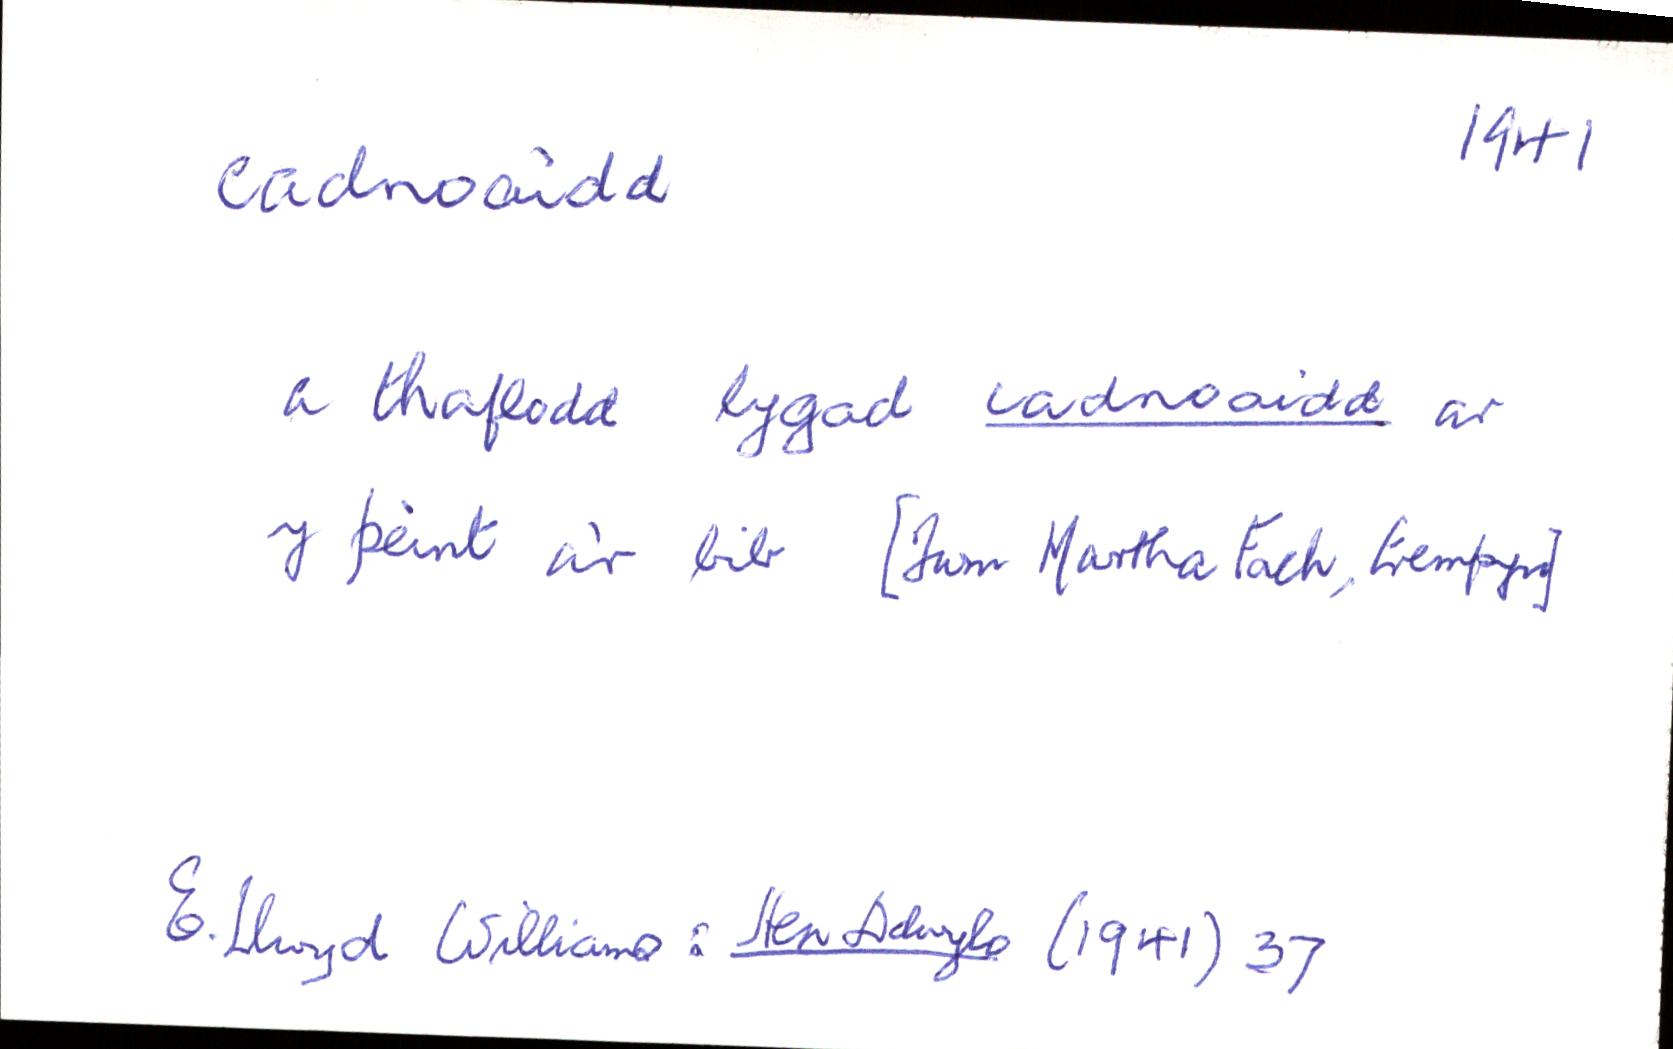 cadnoaidd
1941
a thaflodd lygad cadnoaidd ar
y peint a'r bib [Twm Martha Fach, trempyn]
E. Llwyd Williams: Hen Ddwylo (1941) 37